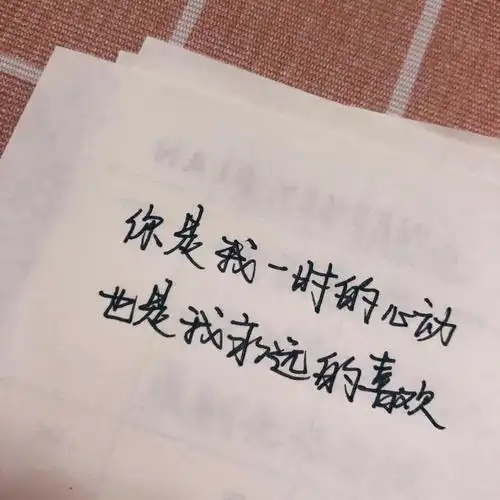 你是我一时的心动
也是我永远的喜欢